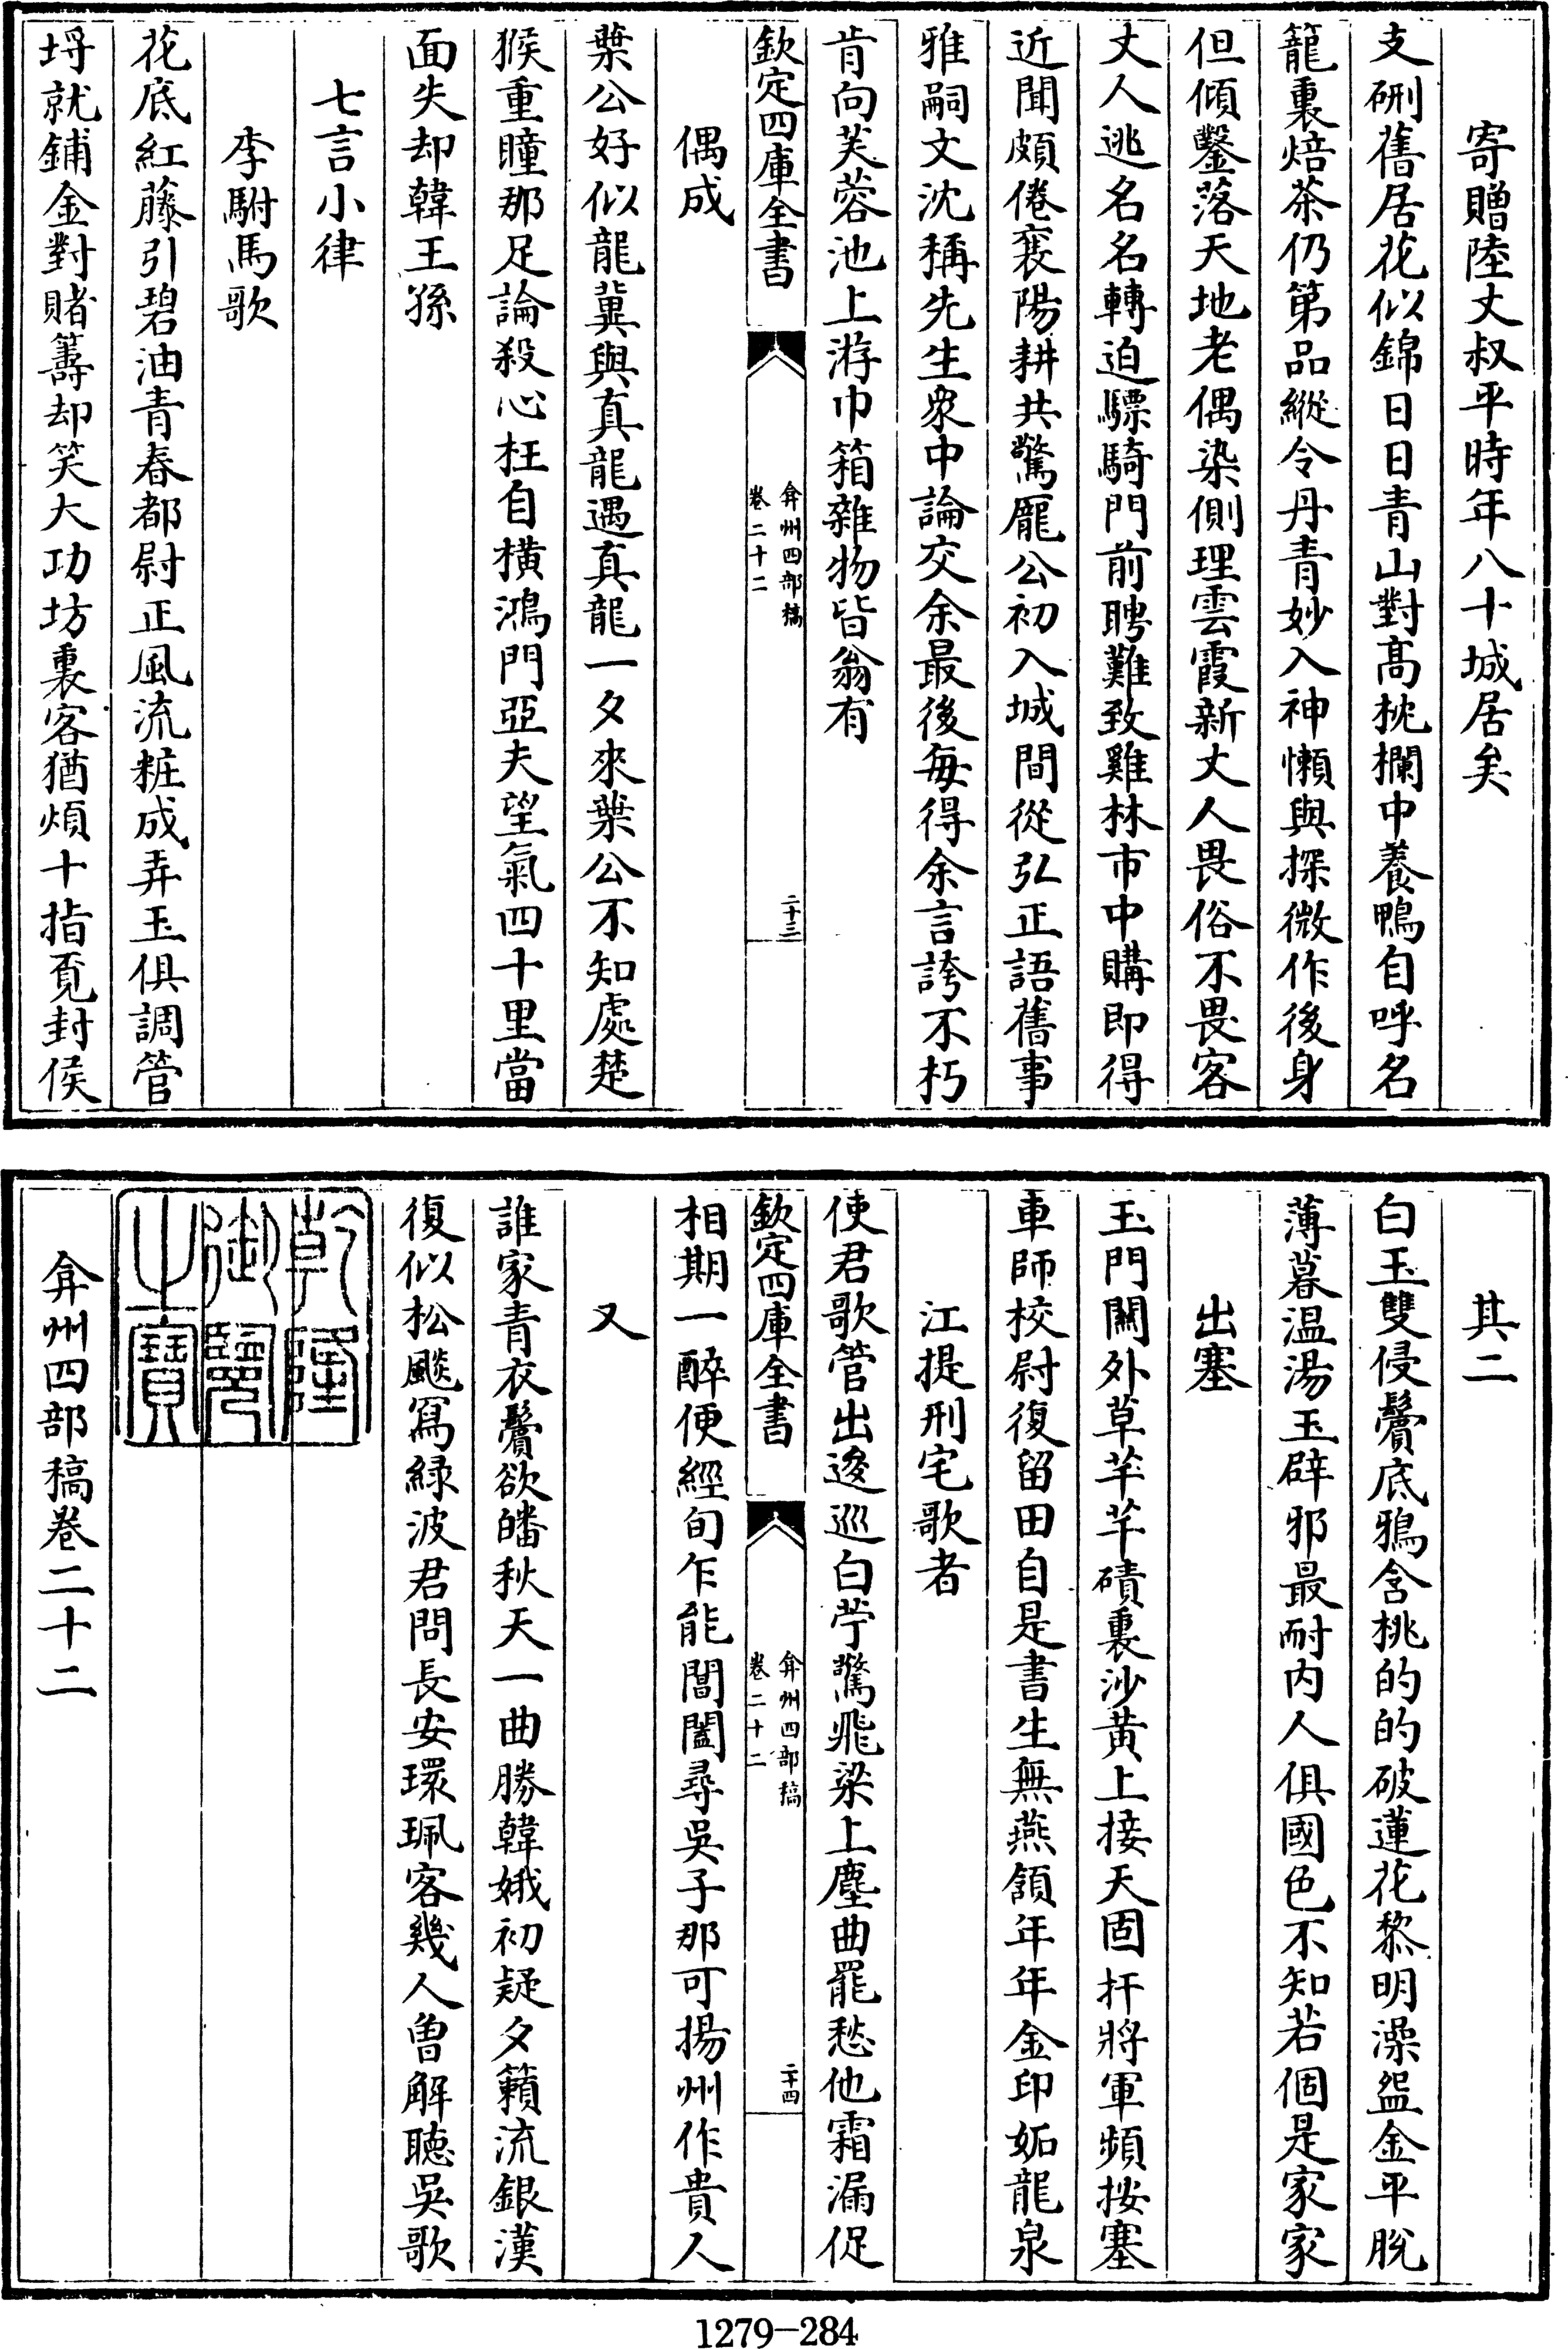 寄贈陸丈叔平時年八十城居矣
支硎舊居花似錦日日青山對髙枕欄中養鴨自呼名
籠裏焙茶仍第品縱令丹青妙入神懶與探微作後身
但傾鑿落天地老偶染側理雲霞新丈人畏俗不畏客
丈人逃名名轉迫驃騎門前聘難致雞林市中購即得
近聞頗倦襄陽耕共驚龎公初入城間從弘正語舊事
雅嗣文沈稱先生衆中論交余最後毎得余言誇不朽
肯向芙蓉池上游巾箱雜物皆翁有
欽定四庫全書
弇州四部稿
卷二十二
二十三
偶成
葉公好似龍冀與真龍遇真龍一夕來葉公不知處楚
猴重瞳那足論殺心枉自橫鴻門亞夫望氣四十里當
面失却韓王孫
七言小律
李駙馬歌
花底紅藤引碧油青春都尉正風流粧成弄玉俱調管
埒就鋪金對賭籌却笑大功坊裏客猶煩十指覔封侯
其二
白玉雙侵鬢底鴉含桃的的破蓮花黎明澡盥金平脫
薄暮温湯玉辟邪最耐内人俱國色不知若個是家家
出塞
玉門闗外草芊芊磧裏沙黄上接天固扞將軍頻按塞
車師校尉復留田自是書生無燕頷年年金印妬龍泉
江提刑宅歌者
使君歌管出逡巡白苧驚飛梁上塵曲罷愁他霜漏促
欽定四庫全書
弇州四部稿
卷二十二
二十四
相期一醉便經旬乍能閶闔尋吳子那可揚州作貴人
又
誰家青衣鬢欲皤秋天一曲勝韓娥初疑夕籟流銀漢
復似松颷寫緑波君問長安環珮客幾人曽解聴吳歌
乾隆
御覽
之寶
弇州四部稿卷二十二
1279-284